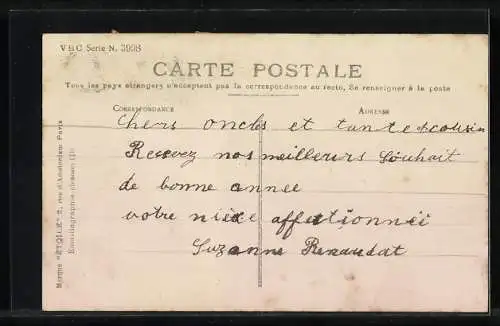 VBC Serie N. 3938
CARTE POSTALE
Tous les pays étrangers n'acceptent pas la correspondance au recto, Se renseigner à la poste
CORRESPONDANCE
ADRESSE
Chers oncles et tante et cousin
Recevez nos meilleurs Souhait
de bonne annee
votre niece affectionneé
Suzanne Renaudat
Marque "ETOILE" 2, rue d'Amsterdam Paris